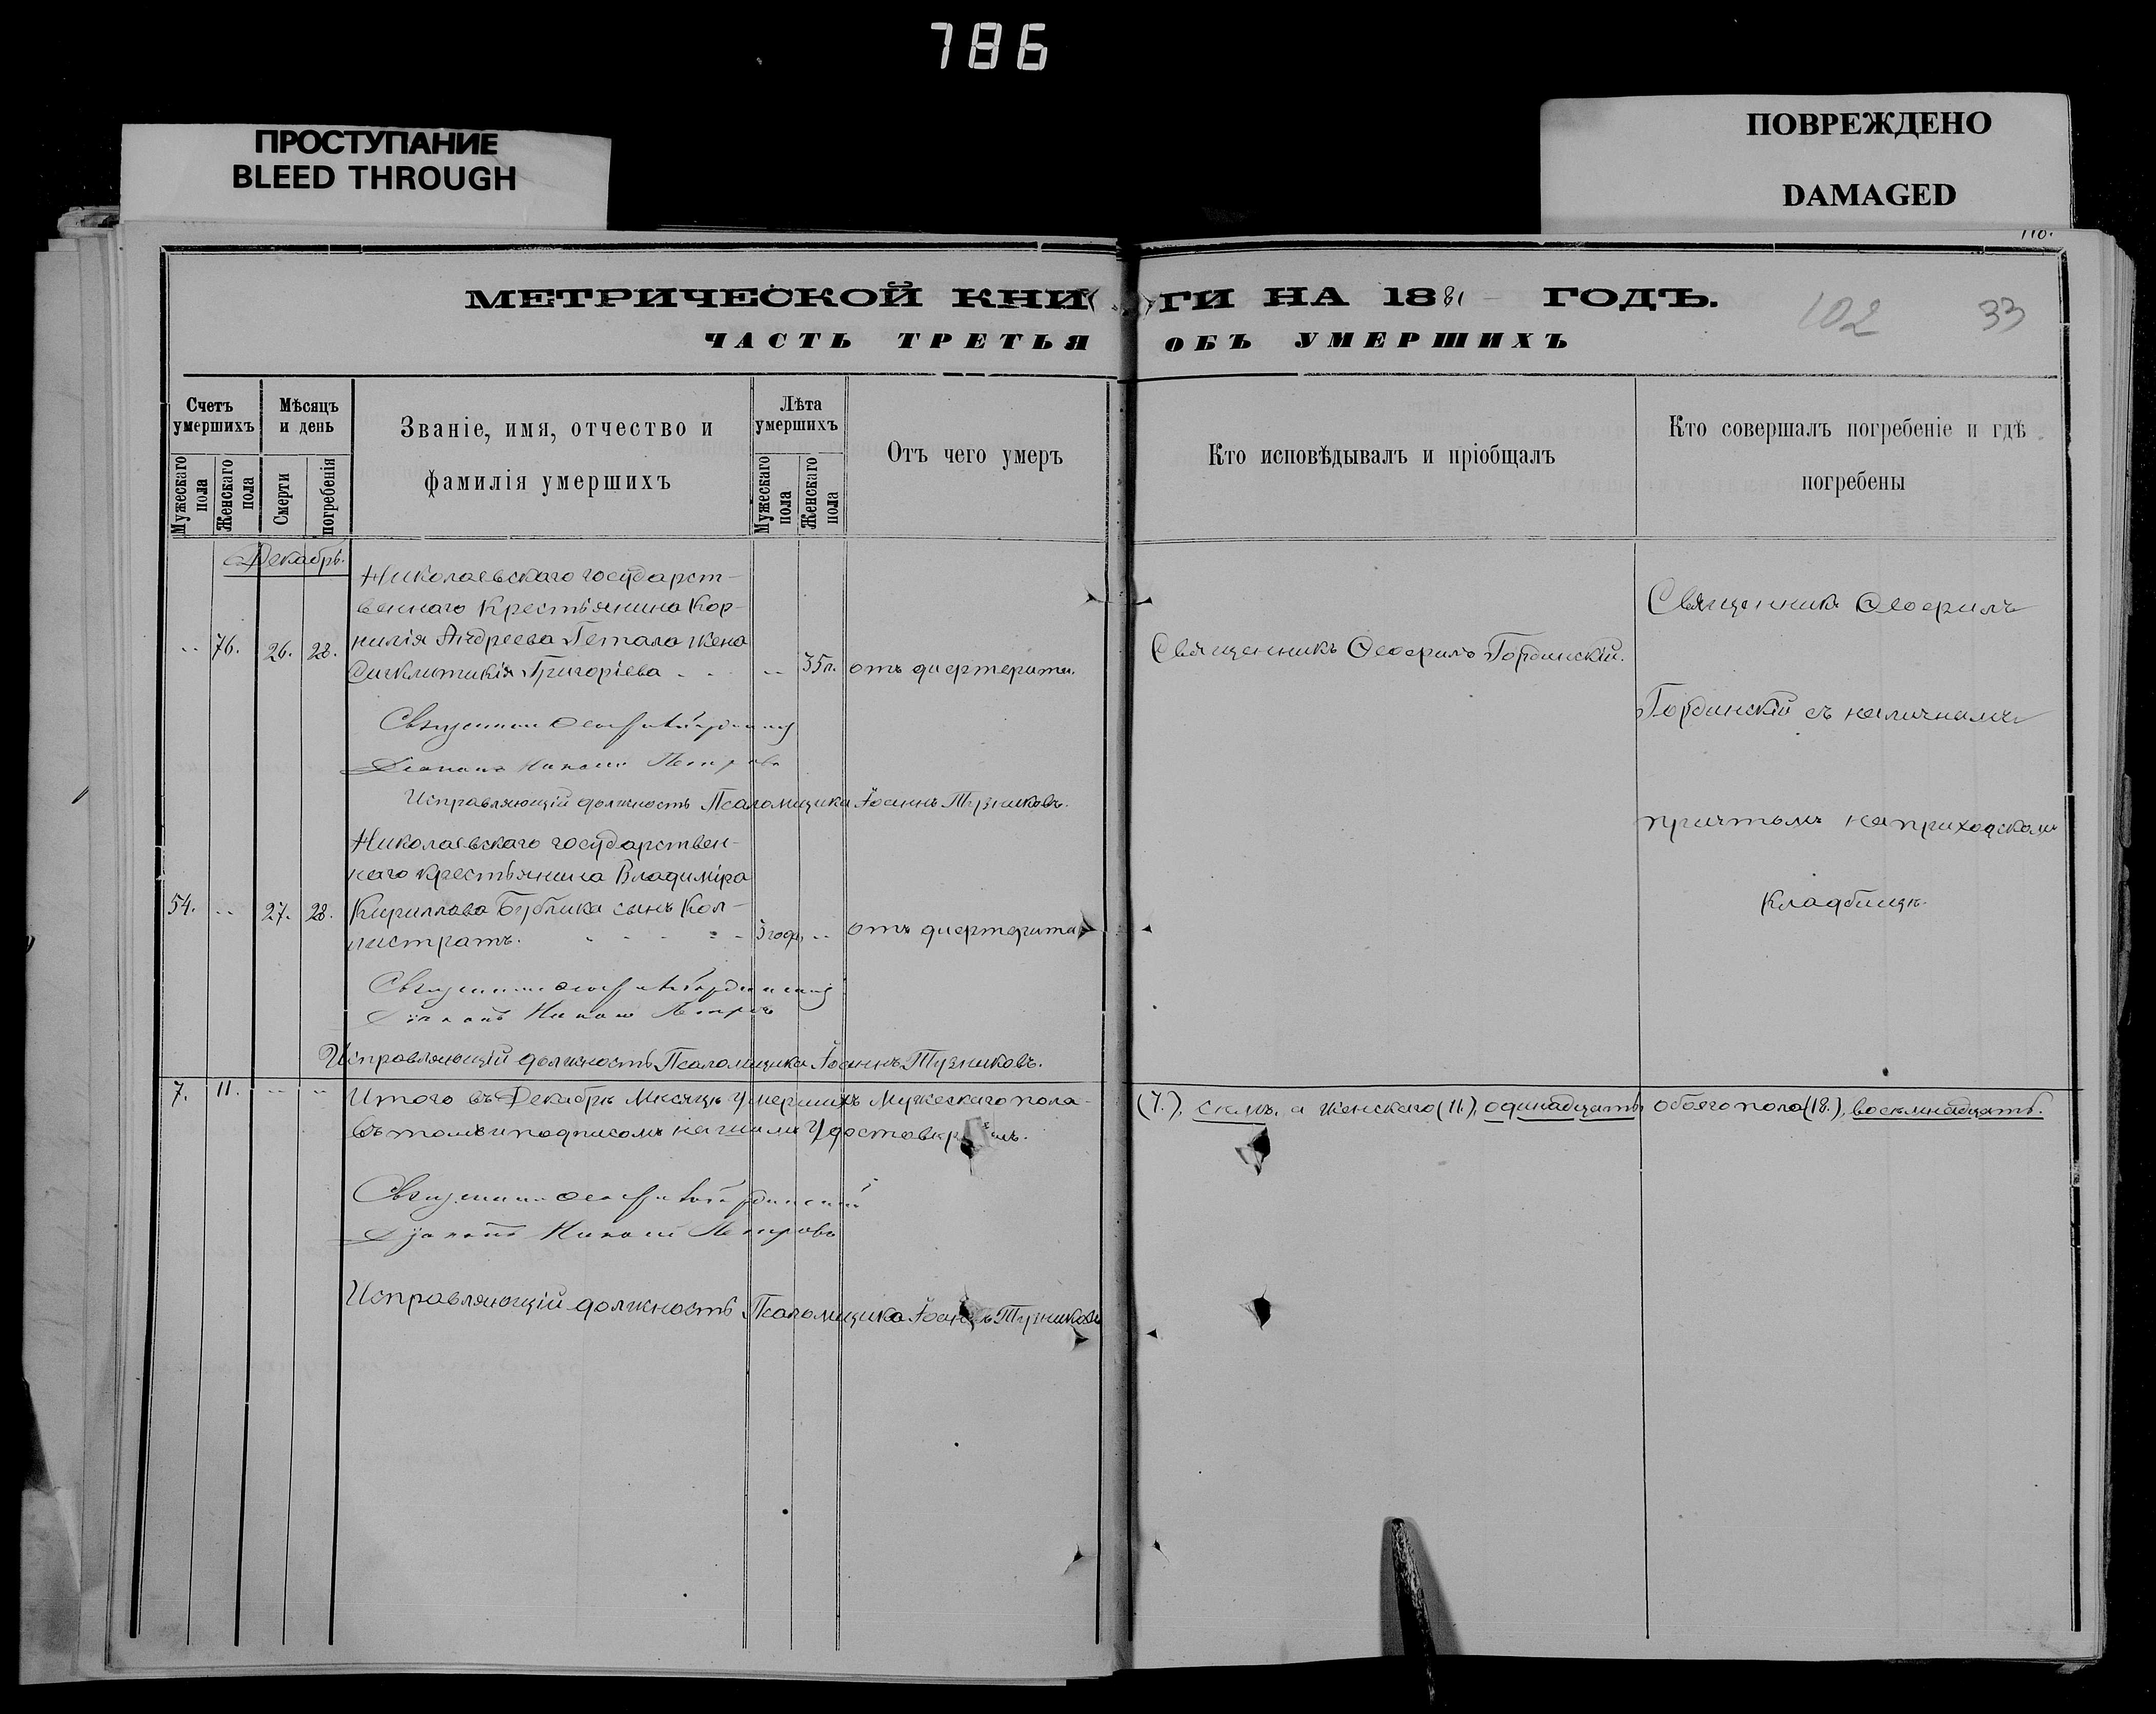 786
ПРОСТУПАНИЕ
BLEED THROUGH
ПОВРЕЖДЕНО
DAMAGED
МЕТРИЧЕСКОЙ КНИГИ НА 1881 ГОДЪ.
102 33
ЧАСТЬ ТРЕТЬЯ ОБЪ УМЕРШИХЪ
Счетъ умершихъ
Мужескаго пола
Женскаго пола
Мѣсяцъ и день
Смерти
погребенія
Званіе, имя, отчество и
фамилія умершихъ
Лѣта умершихъ
Мужескаго пола
Женскаго пола
Отъ чего умеръ
Кто исповѣдывалъ и пріобщалъ
Кто совершалъ погребеніе и гдѣ
погребены
Декабрь.
Николаевскаго государст-
веннаго крестьянина Кор-
76. 26. 28. нилія Андреева Гетало жена
Синклитикія Григоріева 35л. отъ дифтерита.
Священникъ Ѳеофилъ Гординскій.
Священникъ Ѳеофилъ
Гординскій съ наличнымъ
причтомъ на приходскомъ
кладбищѣ.
Священникъ Ѳеофилъ Гординскій
Діаконъ Николай Петровъ
Исправляющій должность Псаломщика Іоаннъ Тузниковъ.
Николаевскаго государствен-
наго крестьянина Владиміра
54. 27. 28. Кириллова Бублика сынъ Кал-
листратъ. 3 года, отъ дифтерита
Священникъ Ѳеофилъ Гординскій
Діаконъ Николай Петровъ
Исправляющій должность Псаломщика Іоаннъ Тузниковъ.
7. 11. Итого въ Декабрѣ Мѣсяцѣ умершихъ Мужескаго пола (7.), семь, а женскаго (11.), одинадцать, обоего пола (18.), восемьнадцать.
въ томъ и подписомъ нашимъ удостовѣряемъ.
Священникъ Ѳеофилъ Гординскій
Діаконъ Николай Петровъ
Исправляющій должность Псаломщика Іоаннъ Тузниковъ